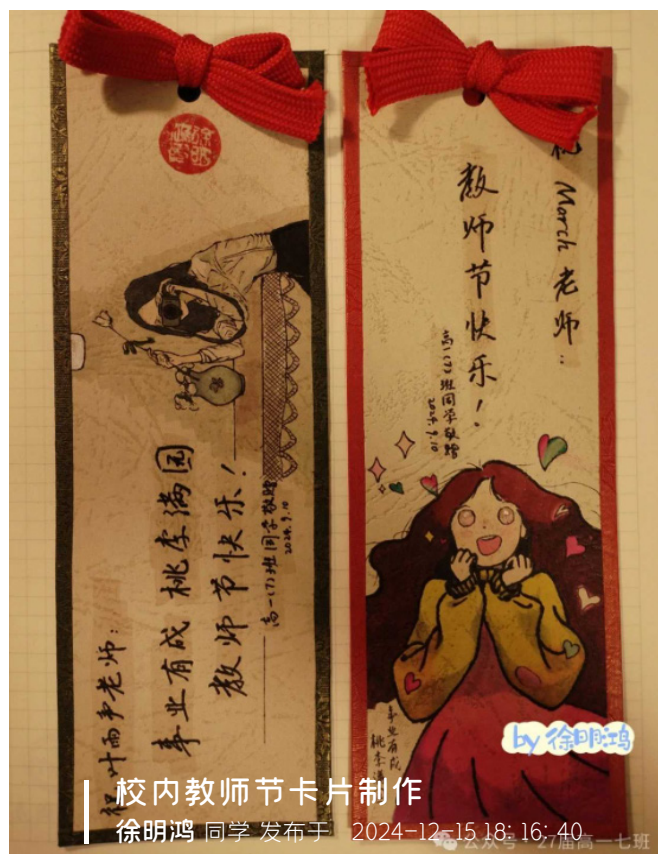 祝叶雨声老师：
事业有成 桃李满园
教师节快乐！
高一(7)班同学敬赠
2024.9.10
March 老师：
教师节快乐！
高一(7)班同学敬赠
2024.9.10
事业有成
桃李
by 徐明鸿
校内教师节卡片制作
徐明鸿 同学 发布于 2024-12-15 18:16:40
公众号 · 27届高一七班